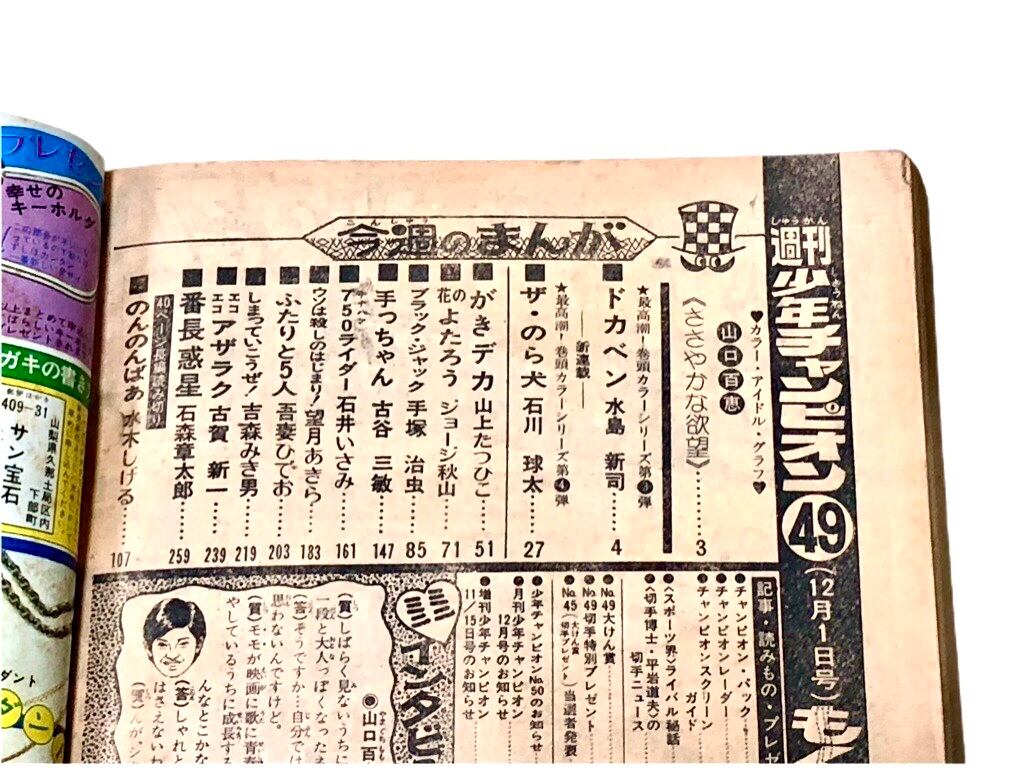 週刊少年チャンピオン㊾(12月1日号)
しゅうかん
♥カラー・アイドル・グラフ♥
山口百恵
《ささやかな欲望》……3
こんしゅう
今週のまんが
★最高潮!巻頭カラーシリーズ第❸弾
ドカベン 水島 新司……4
新連載
★最高潮!巻頭カラーシリーズ第❹弾
ザ・のら犬 石川 球太……27
がきデカ 山上たつひこ……51
花のよたろう ジョージ秋山……71
ブラック・ジャック 手塚 治虫……85
手っちゃん 古谷 三敏……147
750ライダー 石井いさみ……161
ナナハン
ウソは殺しのはじまり! 望月あきら……183
ふたりと5人 吾妻ひでお……203
しまっていこうぜ! 吉森みき男……219
エコエコアザラク 古賀 新一……239
番長惑星 石森章太郎……259
40ページ長編読み切り
のんのんばあ 水木しげる……107
記事・読みもの・プレゼ
●チャンピオン・パック
●チャンピオンレーダー
●チャンピオンスクリーンガイド
●《スポーツ界》ライバル秘話
●《切手博士・平岩道夫》の切手ニュース
●No.49大けん賞
●No.49切手特別プレゼント
●No.45(大けん賞 切手プレゼント)当選者発表
●少年チャンピオンNo.50のお知らせ
●月刊少年チャンピオン12月号のお知らせ
●増刊少年チャンピオン11/15日号のお知らせ
●山口百
(質)しばらく見ないうちに
一段と大人っぽくなったそ
(答)そうですか…自分では
思わないんですけど。
(質)モモが映画に歌に青春
やしているうちに成長する
んなとこかな
(答)しゃれと
はさえないわ
幸せの
キーホルダ
ガキの書き
409-31
山梨県久那土局区内
下部町
サン宝石
ダント